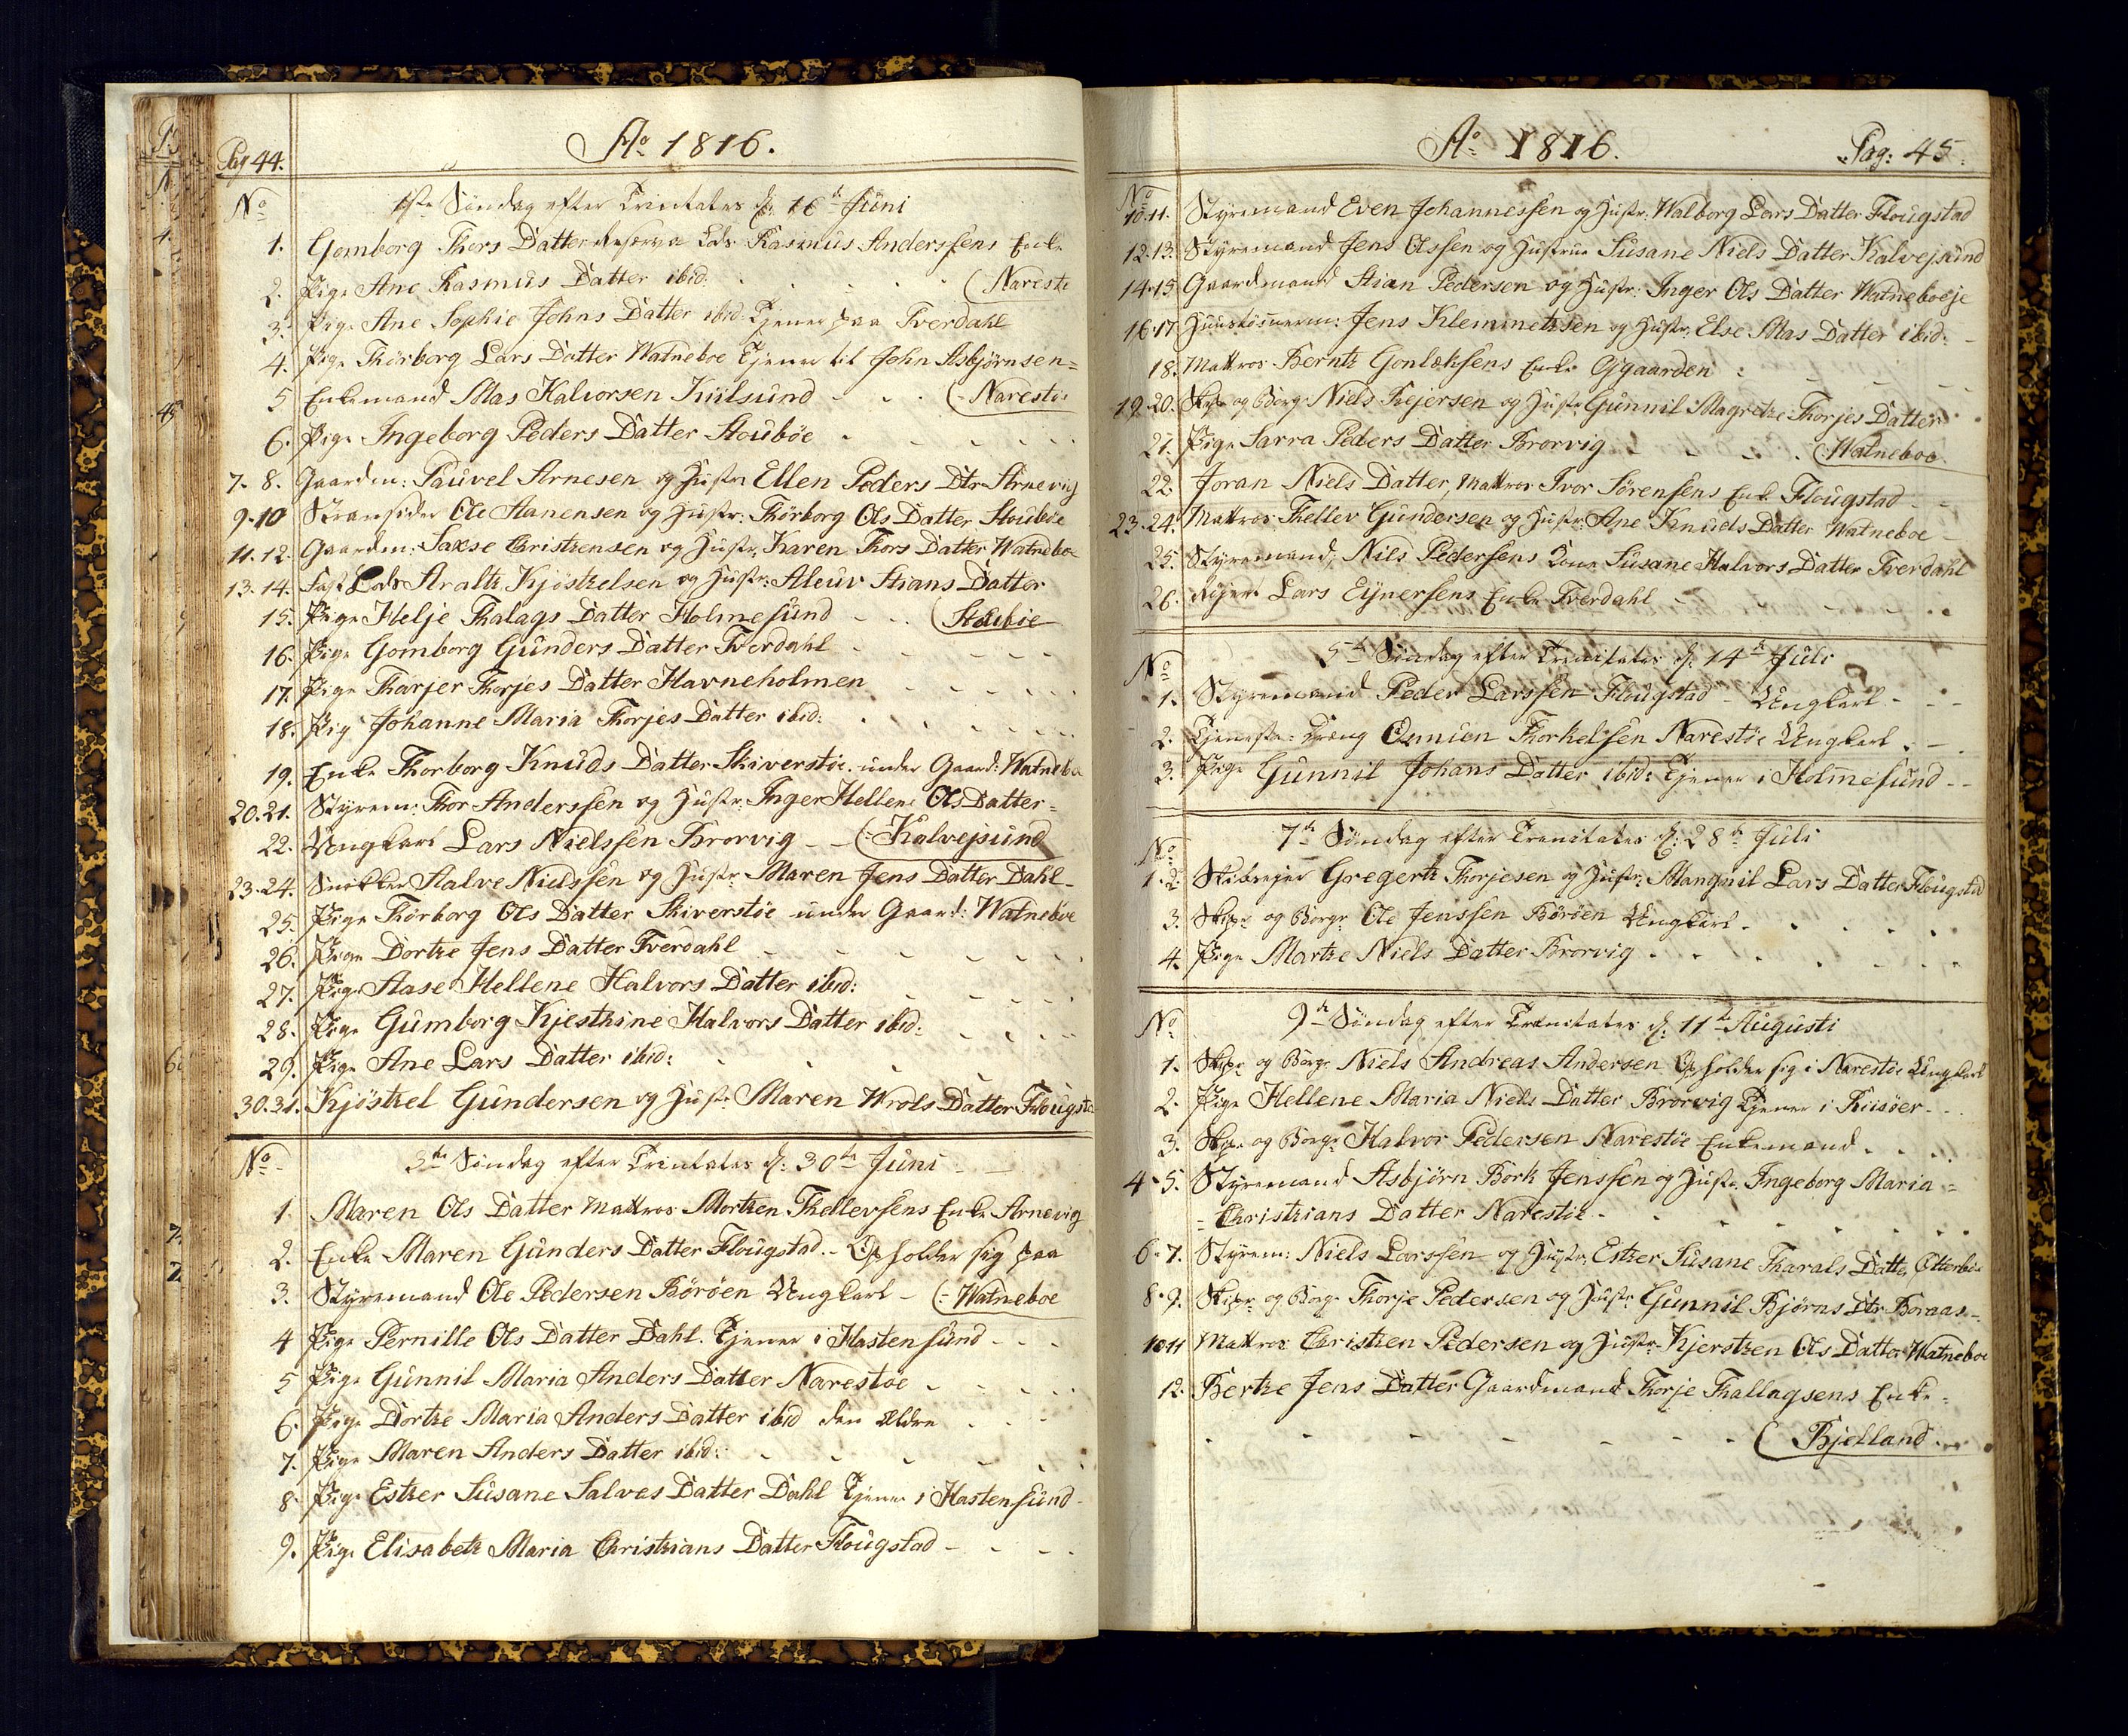 Pag 44.
Ao 1816.
No
1ste Søndag efter Trinitates d: 16de Juni
1. Gomborg Thors Datter Reserva Lods Rasmus Anderssens Enke
2. Pige Ane Rasmus Datter ibid: (Narestø
3. Pige Ane Sophie Johns Datter ibid: Tjener paa Tverdahl
4. Pige Thorborg Lars Datter Watneboe Tjener til John Asbjørnsen=
5 Enkemand Mas Halvorsen Kiilsund (-Narestøe
6. Pige Ingeborg Peders Datter Stoubøe
7. 8. Gaardm: Pauvel Arnesen og Hustr: Ellen Peders Dtr Arnevig
9.10 Stransider Ole Hanensen og Hustr: Thorborg Ols Datter Stoubøe
11.12. Gaardm: Saxse Christhensen og Hustr: Karen Thors Datter Watneboe
13.14. Fast Lods Araltz Kjøsthelsen og Hustr: Aleuv Stians Datter
15. Pige Helje Thalags Datter Holmesund (Stoubøe
16. Pige Gomborg Gunders Datter Tverdahl
17. Pige Tharjer Thorjes Datter Havneholmen
18. Pig Johanne Maria Thorjes Datter ibid:
19. Enke Thorborg Knuds Datter Skiverstøe under Gaard: Watneboe
20.21. Styrem: Thor Anderssen og Hustr: Inger Hellene Ols Datter=
22. Ungkarl Lars Nielssen Brorvig (=Kalvejsund
23.24. Snikker Halve Nielssen og Hustr: Maren Jens Datter Dahl
25. Pige Thorborg Ols Datter Skiverstøe under Gaard: Watnebøe
26. Pige Dorthe Jens Datter Tverdahl
27. Pige Aase Hellene Halvors Datter ibid:
28. Pige Gumborg Kjesthine Halvors Datter ibid:
29. Pige Ane Lars Datter ibid:
30.31. Kjøsthel Gundersen og Hustr: Maren Wrols Datter Flougsta
No
3die Søndag efter Trinitates d: 30te Juni
1 Maren Ols Datter Mattros Morthen Thellevsens Enke Arnevig
2. Enke Maren Gunders Datter Flougstad. Opholder sig paa
3. Styremand Ole Pedersen Børøen Ungkarl (=Watneboe
4 Pige Pernille Ols Datter Dahl. Tjener i Hastensund
5 Pige Gunnil Maria Anders Datter Narestøe
6. Pige Dorthe Maria Anders Datter ibid den Eldre
7. Pige Maren Anders Datter ibid:
8 Pige Esther Susane Salves Datter Dahl Tjener i Hastensund
9. Pige Elisabeth Maria Christhians Datter Flougstad
Ao 1816.
Pag: 45.
No
10.11. Styremand Even Johannessen og Hustr: Walborg Lars Datter Flougstad
12.13. Styremand Jens Olssen og Hustrue Susane Niels Datter Kalvejsund
14.15 Gaardmand Stian Pedersen og Hustr: Inger Ols Datter Watneboeje
16.17 Jens Klemmetzsen og Hustr: Else Mas Datter ibid:
18. Mattros Berntz Gonløksens Enke Gjgaarden
19.20. Skipr og Borgr Niels Rejersen og Hustr: Gunnil Magrethe Thorjes Datter
21. Pige Sarra Peders Datter Brorvig (Watneboe
22. Joran Niels Datter, Mattros Ivor Sørensens Enke Flougstad
23.24. Mattros Thellev Gundersen og Hustr: Ane Knuds Datter Watneboe
25. Styremand: Nils Pedersens Kone Susane Halvors Datter Tverdahl
26. Lars Ejnersens Enke Tverdahl
No
5te Søndag efter Trinitates d: 14de Juli
1. Styremand Peder Larssen Flougstad Ungkarl
2. Tjeneste=Dreng Thorkelsen Narestøe Ungkarl
3. Pige Gunnil Johans Datter ibid: Tjener i Holmesund
No
7de Søndag efter Trenitates d: 28de Juli
1.2. Skibsejer Gregertz Thorjesen og Hustr: Mangnil Lars Datter Flougstad
3. Skipr og Borgr Ole Jenssen Børøen Ungkarl
4. Pige Marthe Niels Datter Brorvig
No
9de Søndag efter Trenitates d: 11te Augusti
1. Skipr og Borgr Niels Andreas Andersen Opholder sig i Narestøe Ungkarl
2. Pige Hellene Maria Niels Datter Brorvig Tjener i Riisøer
3. Skipr og Borgr Halvor Pedersen Narestøe Enkemand
4.5. Styremand Asbjørn Bork Jenssen og Hustr: Ingeborg Maria=
=Christhians Datter Narestøe
6.7. Styrem: Niels Larssen og Hustr: Esther Susane Tharals Datter Otterbøe
8.9. Skipr og Borgr Thorje Pedersen og Hustr: Gunnil Bjørns Dtr Boraas
10.11 Mattros Christhen Pedersen og Hustr: Kjersthen Ols Datter Watneboe
12. Berthe Jens Datter Gaardmand Thorje Thallagsens Enke=
(Bjelland